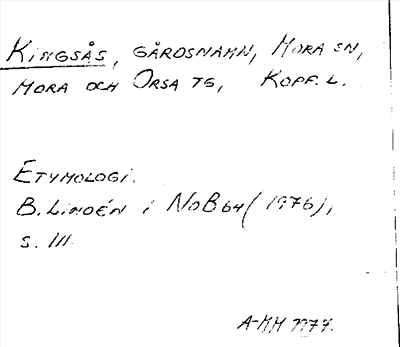 Kingsås, gårdsnamn, Mora sn,
Mora och Orsa tg, Kopp. l.
Etymologi.
B. Lindén i NoB 64 (1976),
s. 111.
A-MH 1977.